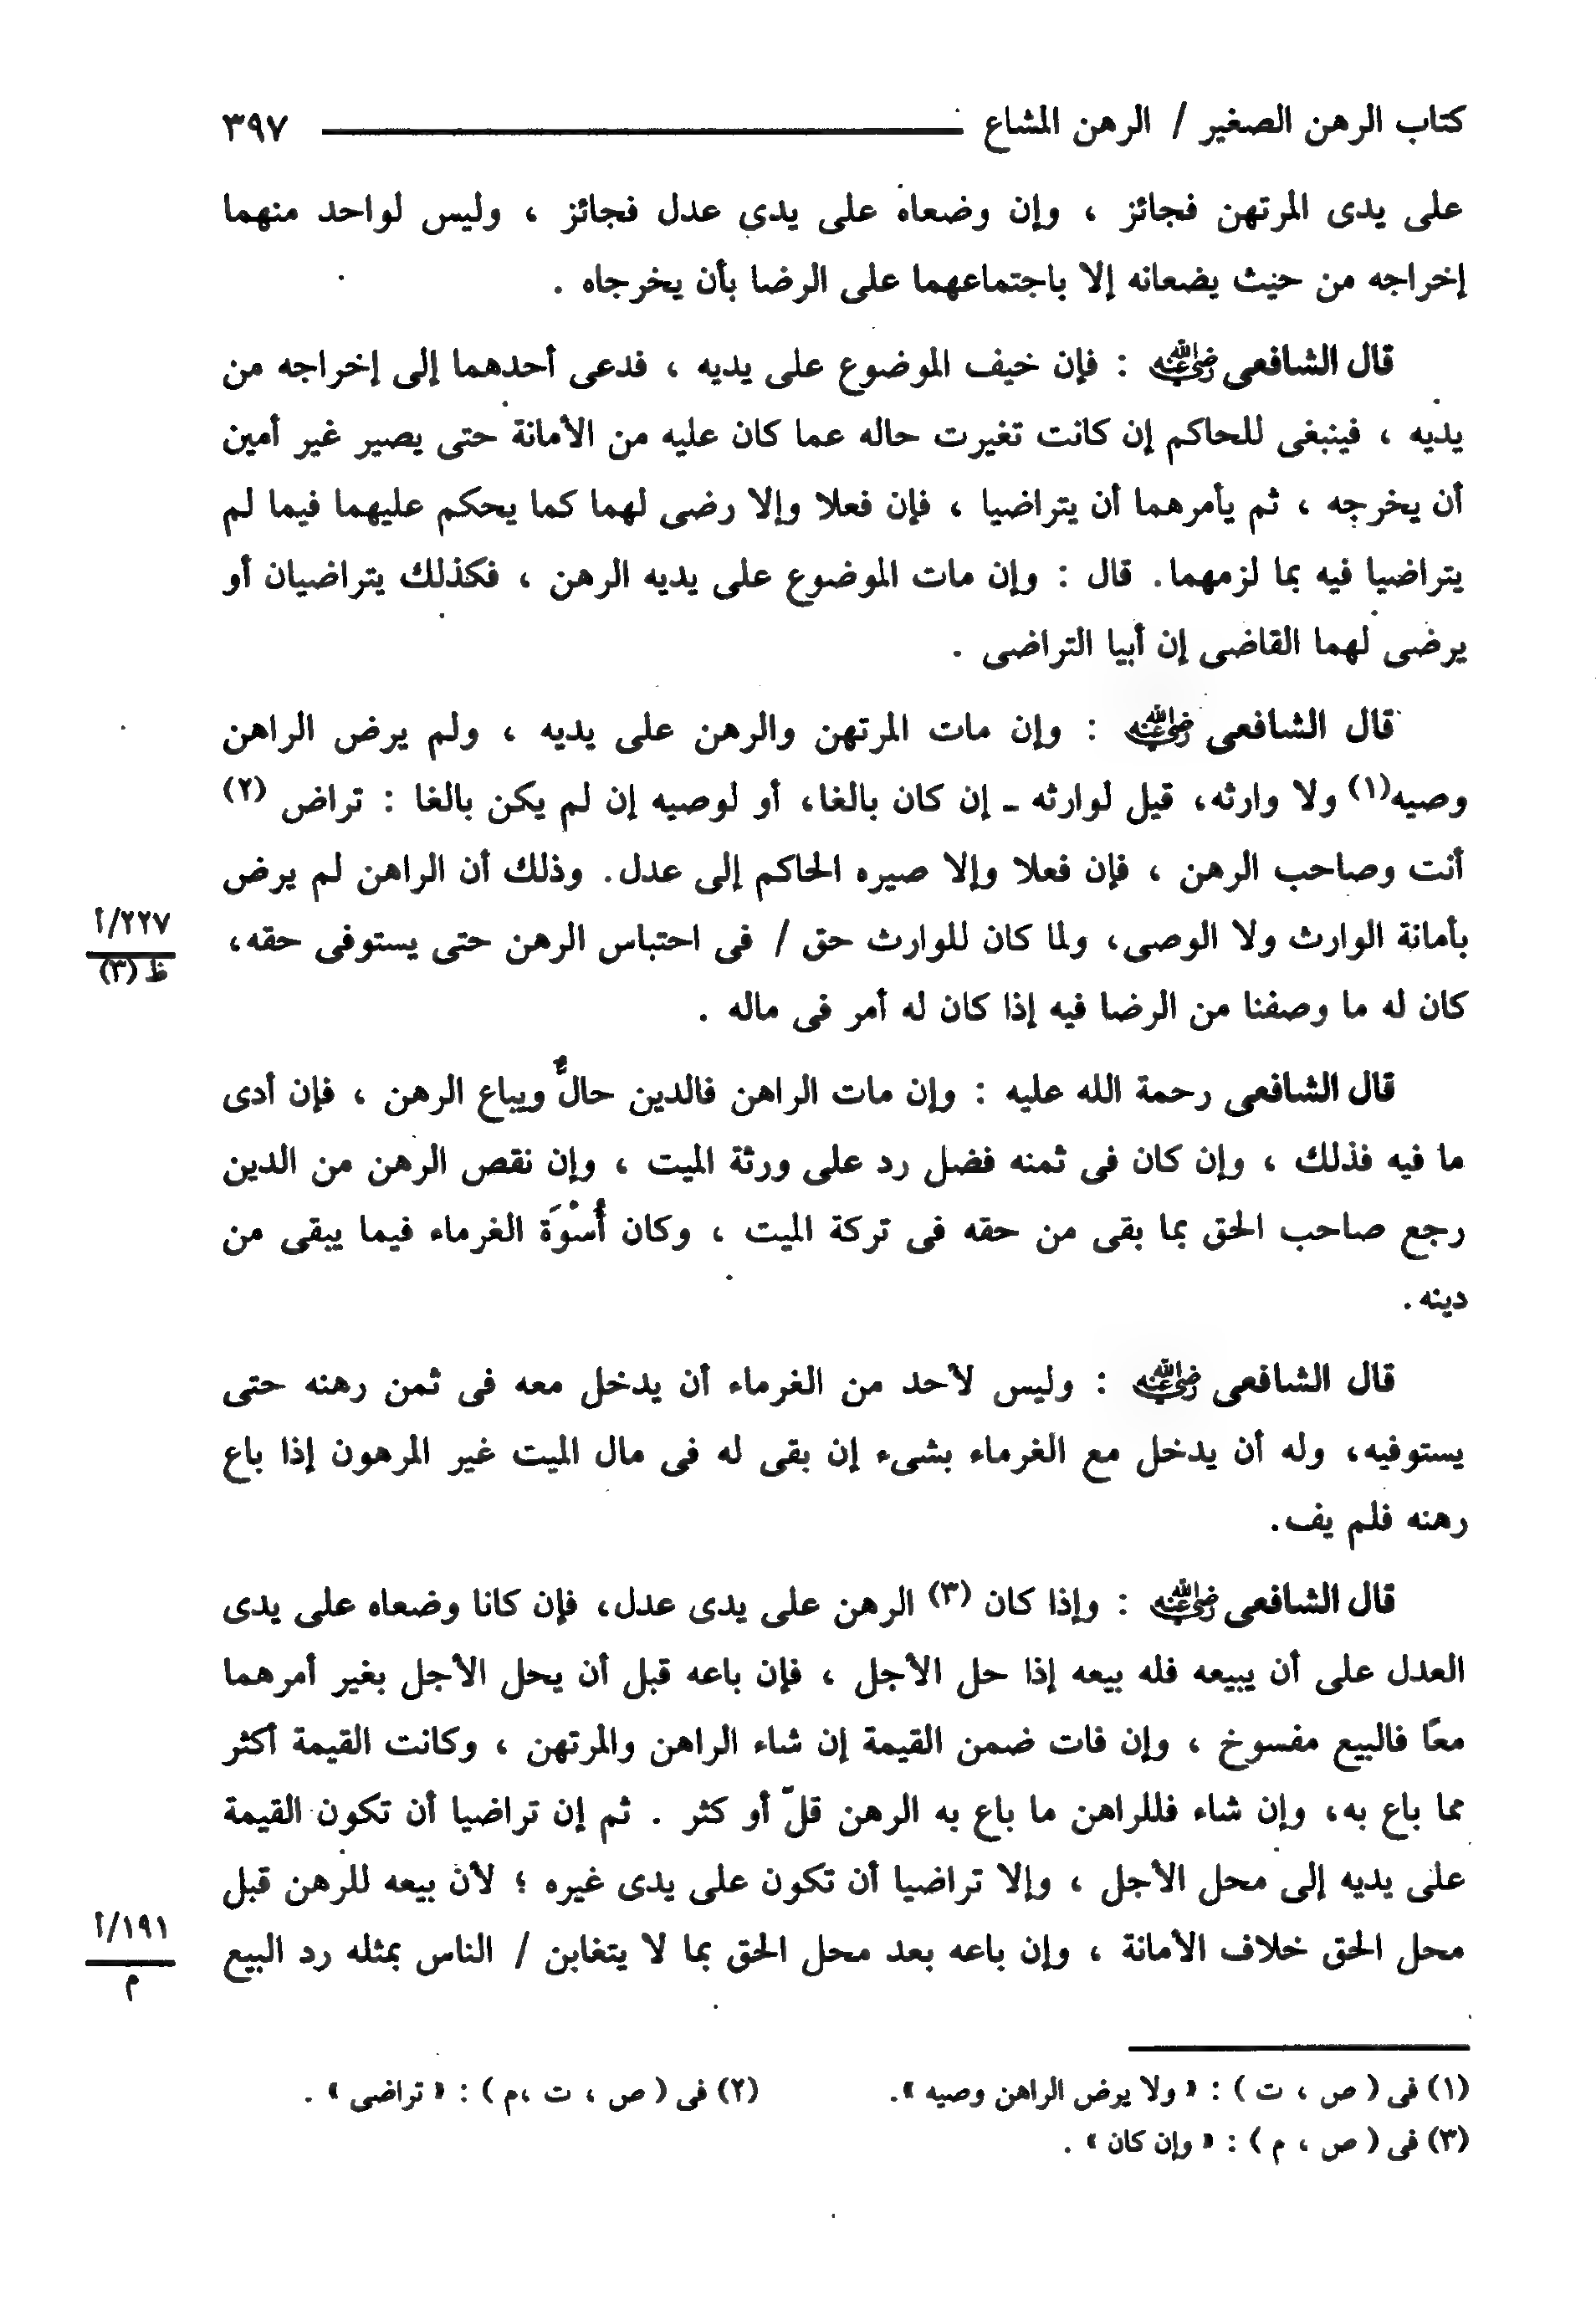 كتاب الرهن الصغير / الرهن المشاع ٣٩٧
على يدى المرتهن فجائز ، وإن وضعاه على يدى عدل فجائز ، وليس لواحد منهما
إخراجه من حيث يضعانه إلا باجتماعهما على الرضا بأن يخرجاه .
قال الشافعى رضي الله عنه : فإن خيف الموضوع على يديه ، فدعى أحدهما إلى إخراجه من
يديه ، فينبغى للحاكم إن كانت تغيرت حاله عما كان عليه من الأمانة حتى يصير غير أمين
أن يخرجه ، ثم يأمرهما أن يتراضيا ، فإن فعلا وإلا رضى لهما كما يحكم عليهما فيما لم
يتراضيا فيه بما لزمهما. قال : وإن مات الموضوع على يديه الرهن ، فكذلك يتراضيان أو
يرضى لهما القاضى إن أبيا التراضى .
قال الشافعى رضي الله عنه : وإن مات المرتهن والرهن على يديه ، ولم يرض الراهن
وصيه(١) ولا وارثه، قيل لوارثه ـ إن كان بالغا، أو لوصيه إن لم يكن بالغا : تراض (٢)
أنت وصاحب الرهن ، فإن فعلا وإلا صيره الحاكم إلى عدل. وذلك أن الراهن لم يرض
بأمانة الوارث ولا الوصى، ولما كان للوارث حق / فى احتباس الرهن حتى يستوفى حقه،
٢٢٧/أ
ظ (٣)
كان له ما وصفنا من الرضا فيه إذا كان له أمر فى ماله .
قال الشافعى رحمة الله عليه : وإن مات الراهن فالدين حالٌّ ويباع الرهن ، فإن أدى
ما فيه فذلك ، وإن كان فى ثمنه فضل رد على ورثة الميت ، وإن نقص الرهن من الدين
رجع صاحب الحق بما بقى من حقه فى تركة الميت ، وكان أُسْوَة الغرماء فيما يبقى من
دينه .
قال الشافعى رضي الله عنه : وليس لأحد من الغرماء أن يدخل معه فى ثمن رهنه حتى
يستوفيه، وله أن يدخل مع الغرماء بشىء إن بقى له فى مال الميت غير المرهون إذا باع
رهنه فلم يف.
قال الشافعى رضي الله عنه : وإذا كان (٣) الرهن على يدى عدل، فإن كانا وضعاه على يدى
العدل على أن يبيعه فله بيعه إذا حل الأجل ، فإن باعه قبل أن يحل الأجل بغير أمرهما
معًا فالبيع مفسوخ ، وإن فات ضمن القيمة إن شاء الراهن والمرتهن ، وكانت القيمة أكثر
مما باع به، وإن شاء فللراهن ما باع به الرهن قلّ أو كثر . ثم إن تراضيا أن تكون القيمة
على يديه إلى محل الأجل ، وإلا تراضيا أن تكون على يدى غيره ؛ لأن بيعه للرهن قبل
محل الحق خلاف الأمانة ، وإن باعه بعد محل الحق بما لا يتغابن / الناس بمثله رد البيع
١٩١/أ
م
(١) فى ( ص ، ت ) : « ولا يرض الراهن وصيه ». (٢) فى ( ص ، ت ،م ) : « تراضى » .
(٣) فى ( ص ، م ) : « وإن كان » .